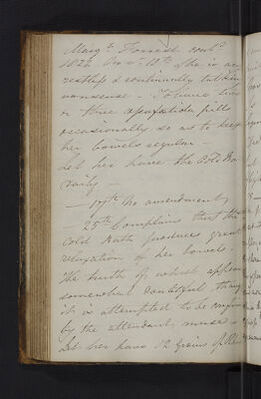 Margt. Forrest contd.
1822 Nov. 12th She is as
restless & continually talking
nonsense – To have two
or three aperitive pills
occasionally so as to keep
her bowels regular –
Let her have the Cold Ba
daily –
– 17th No amendment,
25th Complains that the
Cold Bath produces great
relaxation of her bowels.
The truth of which appears
somewhat doubtful though
it is attempted to be confirm
by the attendant, nurse –
Let her have 12 Grains of